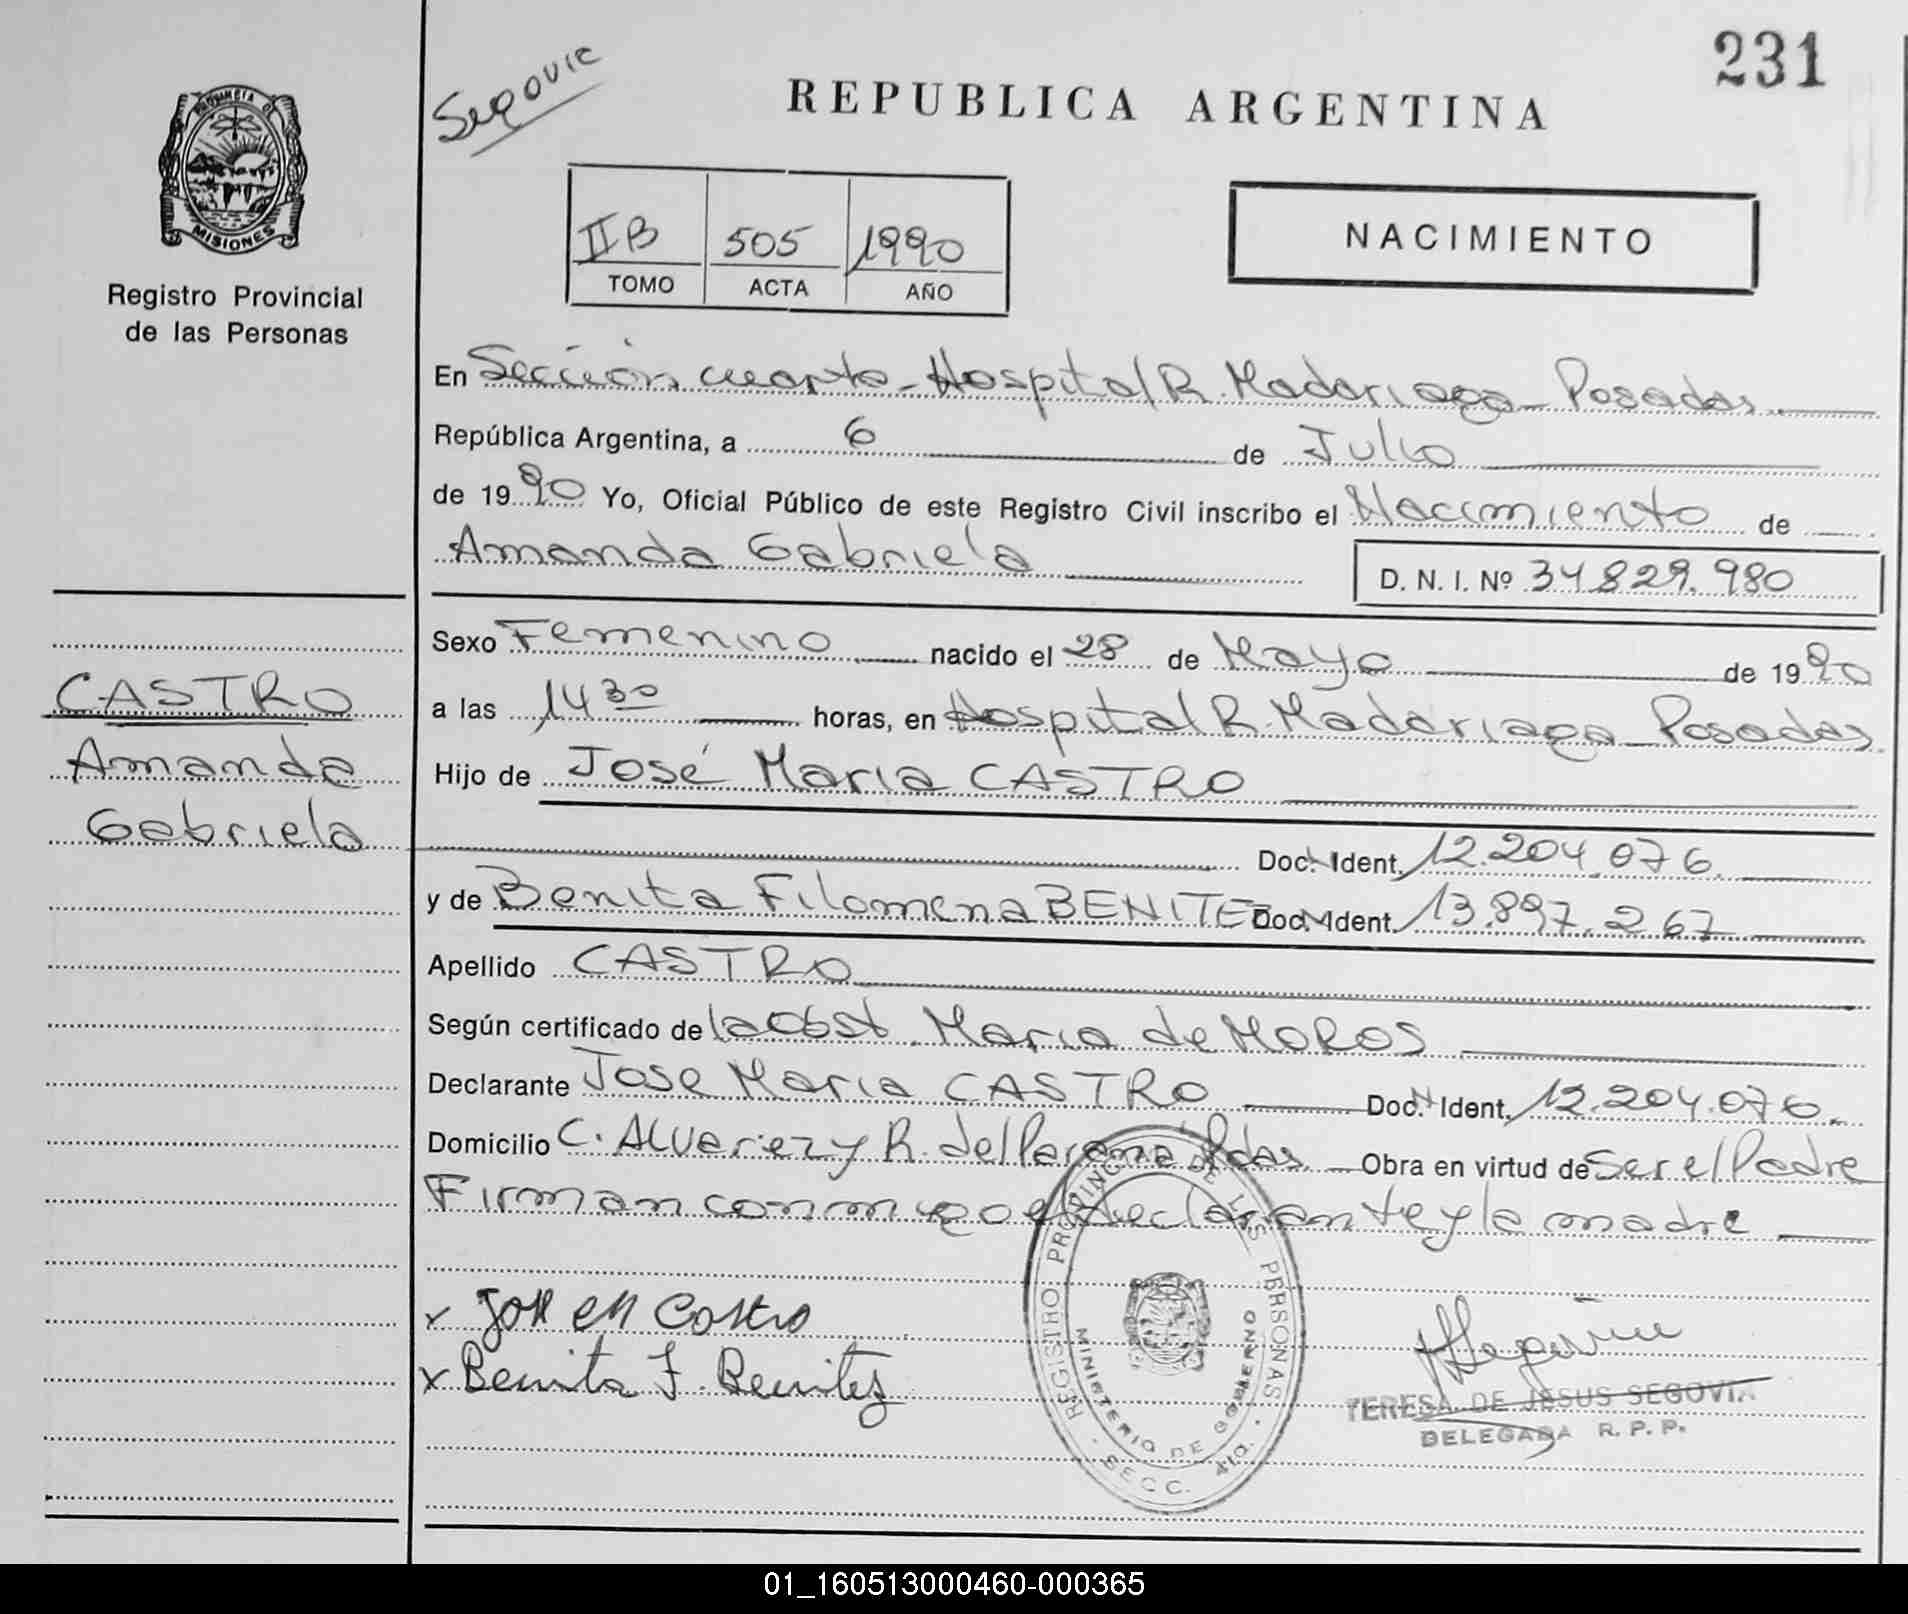 231
Segovia
REPUBLICA ARGENTINA
PROVINCIA DE
MISIONES
Registro Provincial
de las Personas
IIB 505 1990
TOMO ACTA AÑO
NACIMIENTO
En Sección cuarta - Hospital R. Madariaga - Posadas
República Argentina, a 6 de Julio
de 1990 Yo, Oficial Público de este Registro Civil inscribo el Nacimiento de
Amanda Gabriela D. N. I. Nº 34.829.980
CASTRO
Amanda
Gabriela
Sexo Femenino nacido el 28 de Mayo de 1990
a las 14 30 horas, en Hospital R. Madariaga - Posadas
Hijo de José Maria CASTRO
Doc. Ident. 12.204.076.
y de Benita Filomena BENITEZ Doc. Ident. 13.897.267
Apellido CASTRO
Según certificado de la Obst. Maria de MOROS
Declarante Jose Maria CASTRO Doc. Ident. 12.204.076.
Domicilio C. Alvarez y R. del Parana Pdas. Obra en virtud de Ser el Padre
Firman conmigo el declarante y la madre
x Jose M Castro
x Benita F. Benitez
REGISTRO PROVINCIAL DE LAS PERSONAS
MINISTERIO DE GOBIERNO
SECC. 4ta.
TERESA DE JESUS SEGOVIA
DELEGADA R. P. P.
01_160513000460-000365